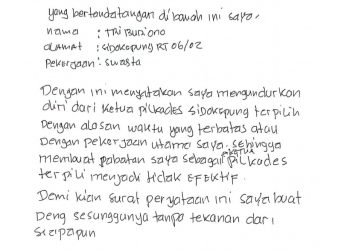 yang bertandatangan dibawah ini saya,
nama : TRI Budiono
alamat : Sidakopung RT 06/02
Pekerjaan : Swasta
Dengan ini menyatakan saya mengundurkan
diri dari Ketua pilkades Sidakopung terpilih
Dengan alasan waktu yang terbatas atau
Dengan pekerjaan utama saya. sehingga
membuat jabatan saya sebagai ketua pilkades
terpili menjadi tidak EFEKTIF.
Demi kian surat peryataan ini saya buat
Deng sesunggunya tanpa tekanan dari
siapapun